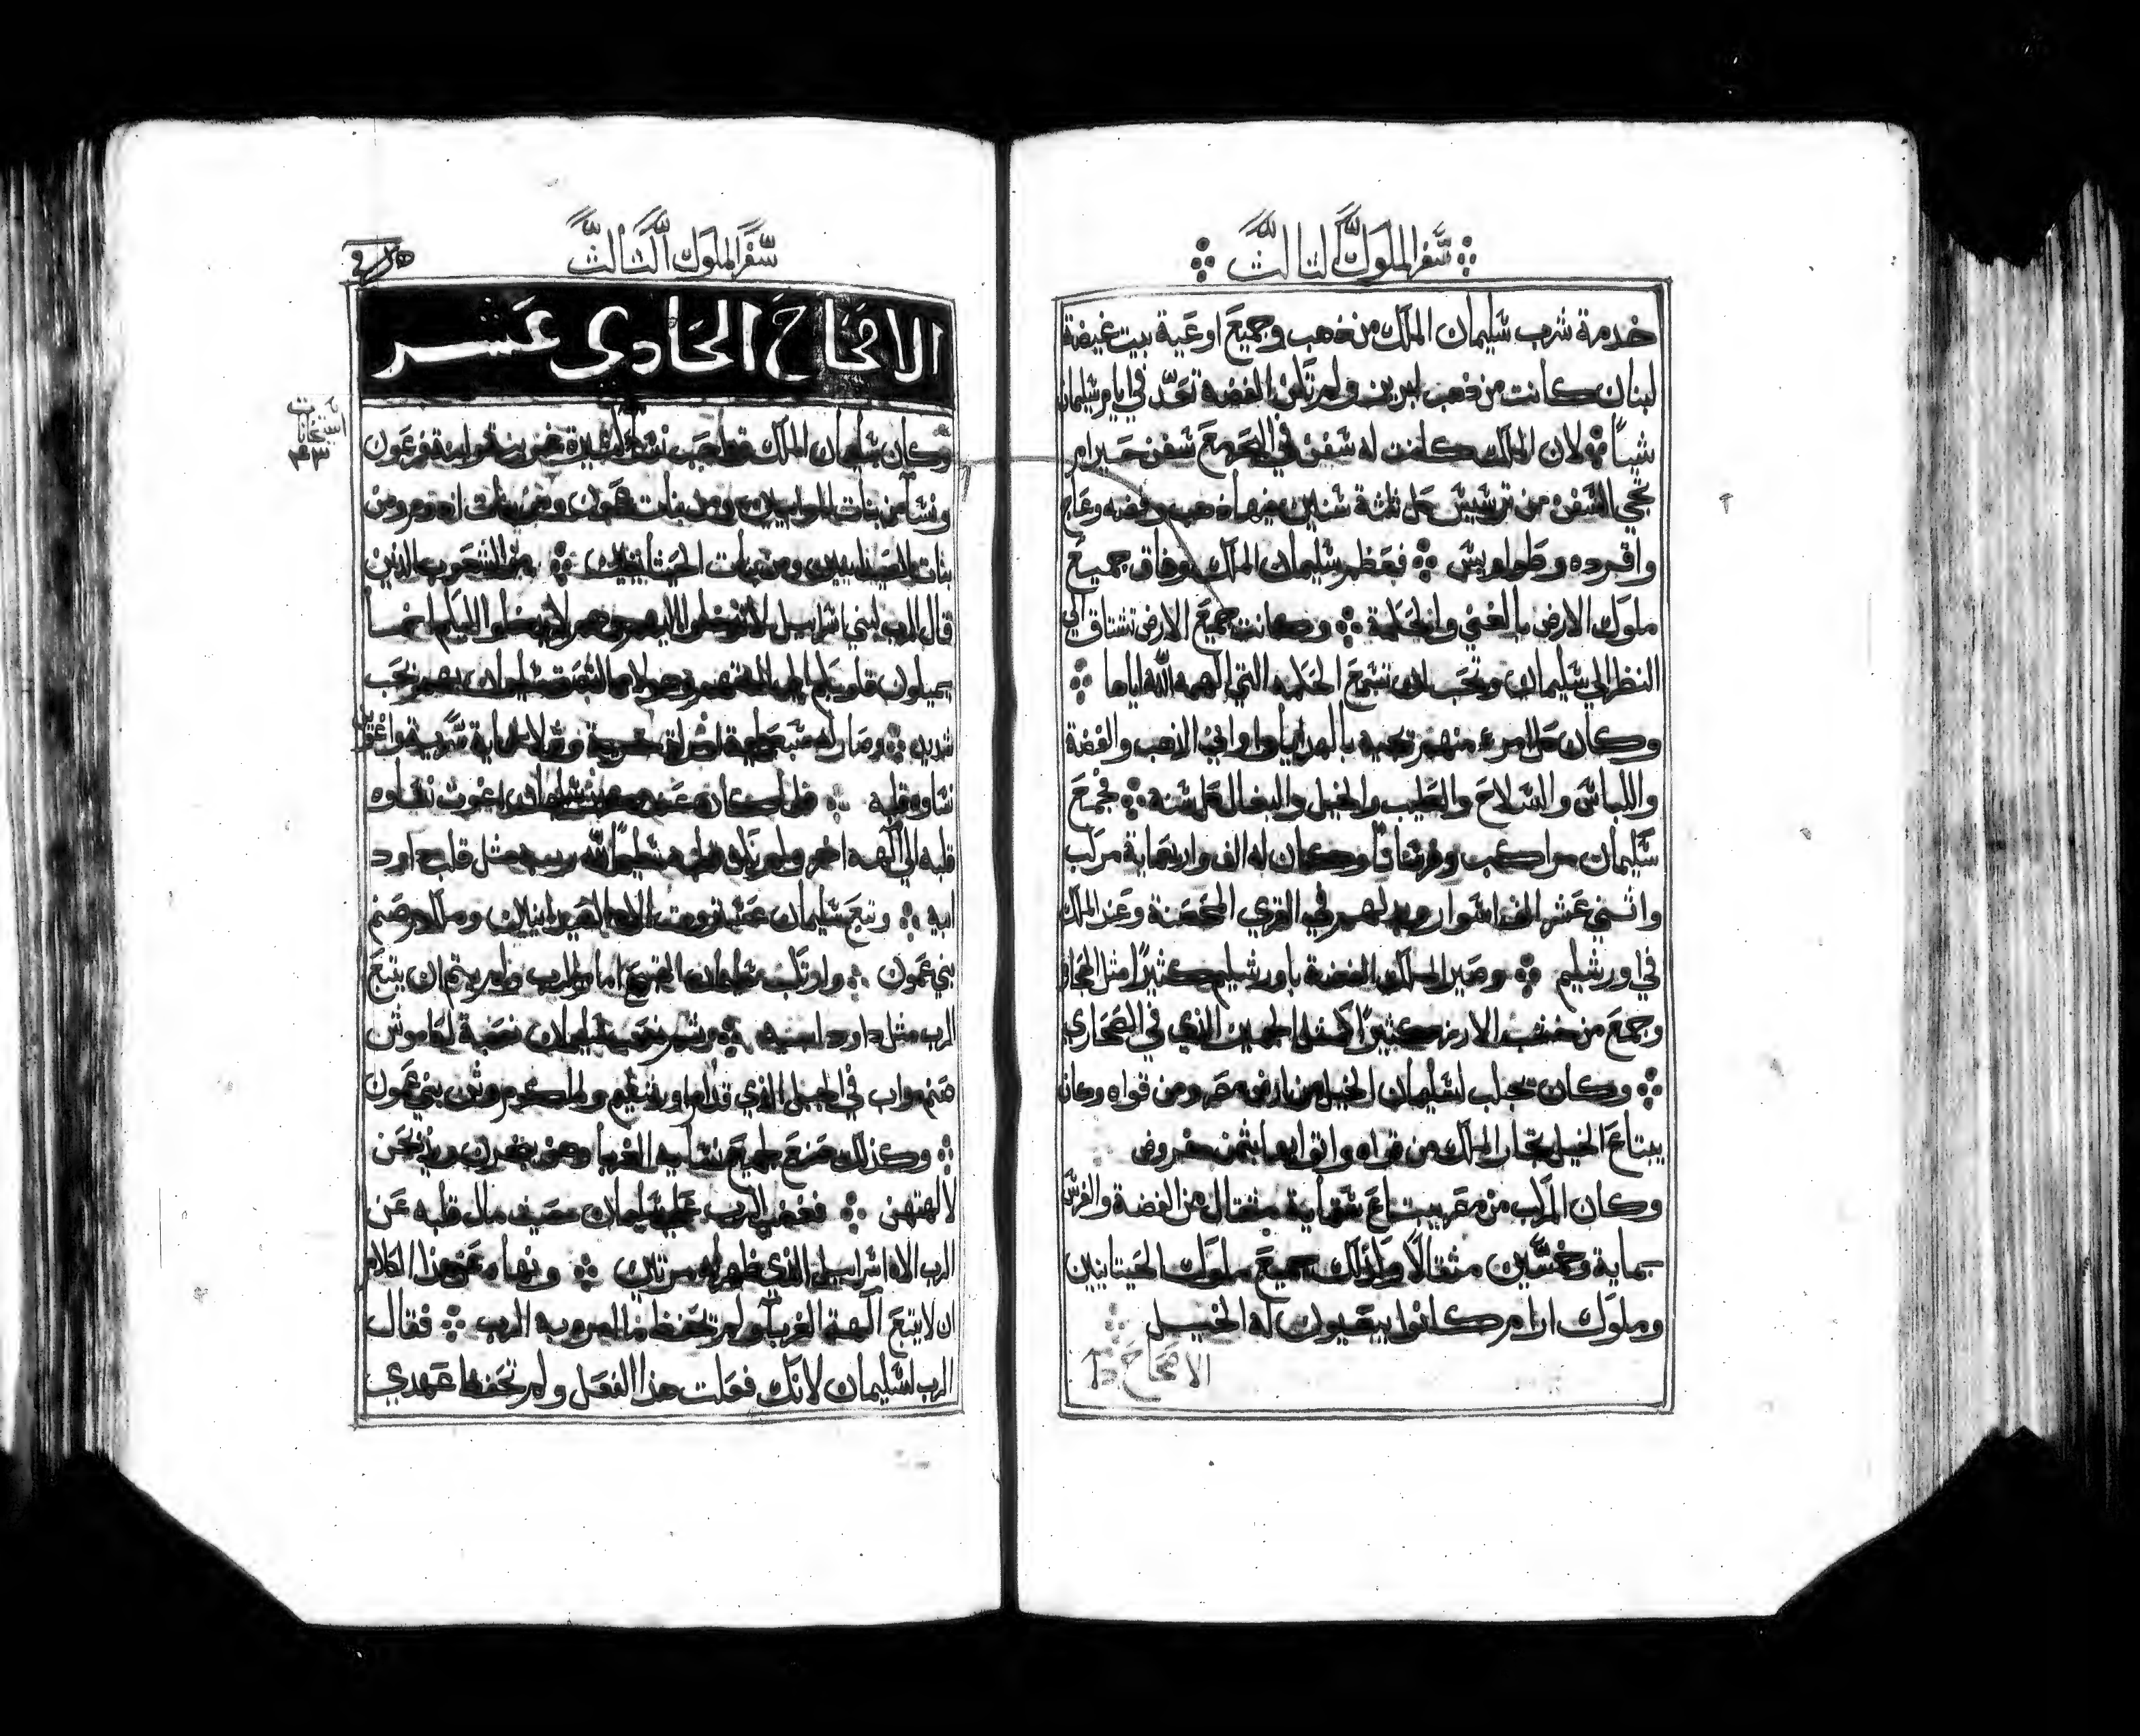 سفر الملوك الثالث
خدمة شرب سليمان الملك من ذهب وجميع اوعية بيت غيضة
لبنان كانت من ذهب ابريز ولم تكن الفضة تعد في ايام سليمان
شياً لان الملك كانت له سفن في البحر مع سفن حيرام
تجي السفن من ترسيس كل ثلثة سنين فيها ذهب وفضه وعاج
واقرده وطواويس فعظم سليمان الملك وفاق جميع
ملوك الارض بالغني والحكمة وكانت جميع الارض تشتاق الي
النظر الي سليمان وتحب ان تسمع الحكمه التي الهمه الله اياها
وكان كل امرء منهم تحيه بالهدايا واواني الذهب والفضة
واللباس والسلاح والطيب والخيل والبغال كل سنه فجمع
سليمان مراكب وفرساناً وكان له الف واربعماية مركب
واثني عشر الف اسوار في القري المحصنة وعند الملك
في اورشليم وصير الملك الفضة باورشليم كثيرًا مثل الحجاره
وجمع من خشب الارز كثيرًا كمثل الجميز الذي في الصحاري
وكان تجلب لسليمان الخيل من ارض مصر ومن قواه وكان
يبتاع الخيل تجار الملك من قواه بثمن مفروض
وكان المركب من مصر يبتاع بستماية مثقال من الفضة والفرس
بماية وخمسين مثقالًا وكذلك جميع ملوك الحيتانيين
وملوك ارام كانوا يبتعون له الخيل
الاصحاح
سفر الملوك الثالث
الاصحاح الحادي عشر
وكان سليمان الملك قد احب نسا كثيرة غريبة وابنة فرعون
ونسا من بنات الموابيين ومن بنات عمون ومن بنات ادوم ومن
بنات الصيدانيين ومن بنات الحيتانيين من الشعوب الذين
قال الرب لبني اسراييل لا تدخلوا اليهم وهم لا يدخلوا اليكم
يميلون قلوبكم الي الهتهم سليمان بحب
شديد وصار له سبعماية امراة حرة وثلاثماية سرية واغوين
نساوه قلبه فلما كان اغوت نساوه
قلبه الي آلهه اخر ولم يكن قلبه سليمًا لله ربه مثل قلب داود
ابيه وتبع سليمان الاه الصيدانيين وملكوم صنم
بني عمون وارتكب سليمان القبيح امام الرب ولم يتم ان يتبع
الرب مثل داود ابيه سليمان نصبة لكاموش
صنم مواب في الجبل الذي قدام اورشليم وملكوم وثن بني عمون
وكذلك صنع لجميع نسايه الغربا وهن يبخرن ويذبحن
لالهتهن فغضب الرب علي سليمان حيث مال قلبه عن
الرب الاه اسراييل الذي ظهر له مرتين ونهاه عن هذا الكلام
ان لا يتبع آلهة الغربآ ولم يحفظ ما امره به الرب فقال
الرب لسليمان لانك فعلت هذا الفعل ولم تحفظ عهدي